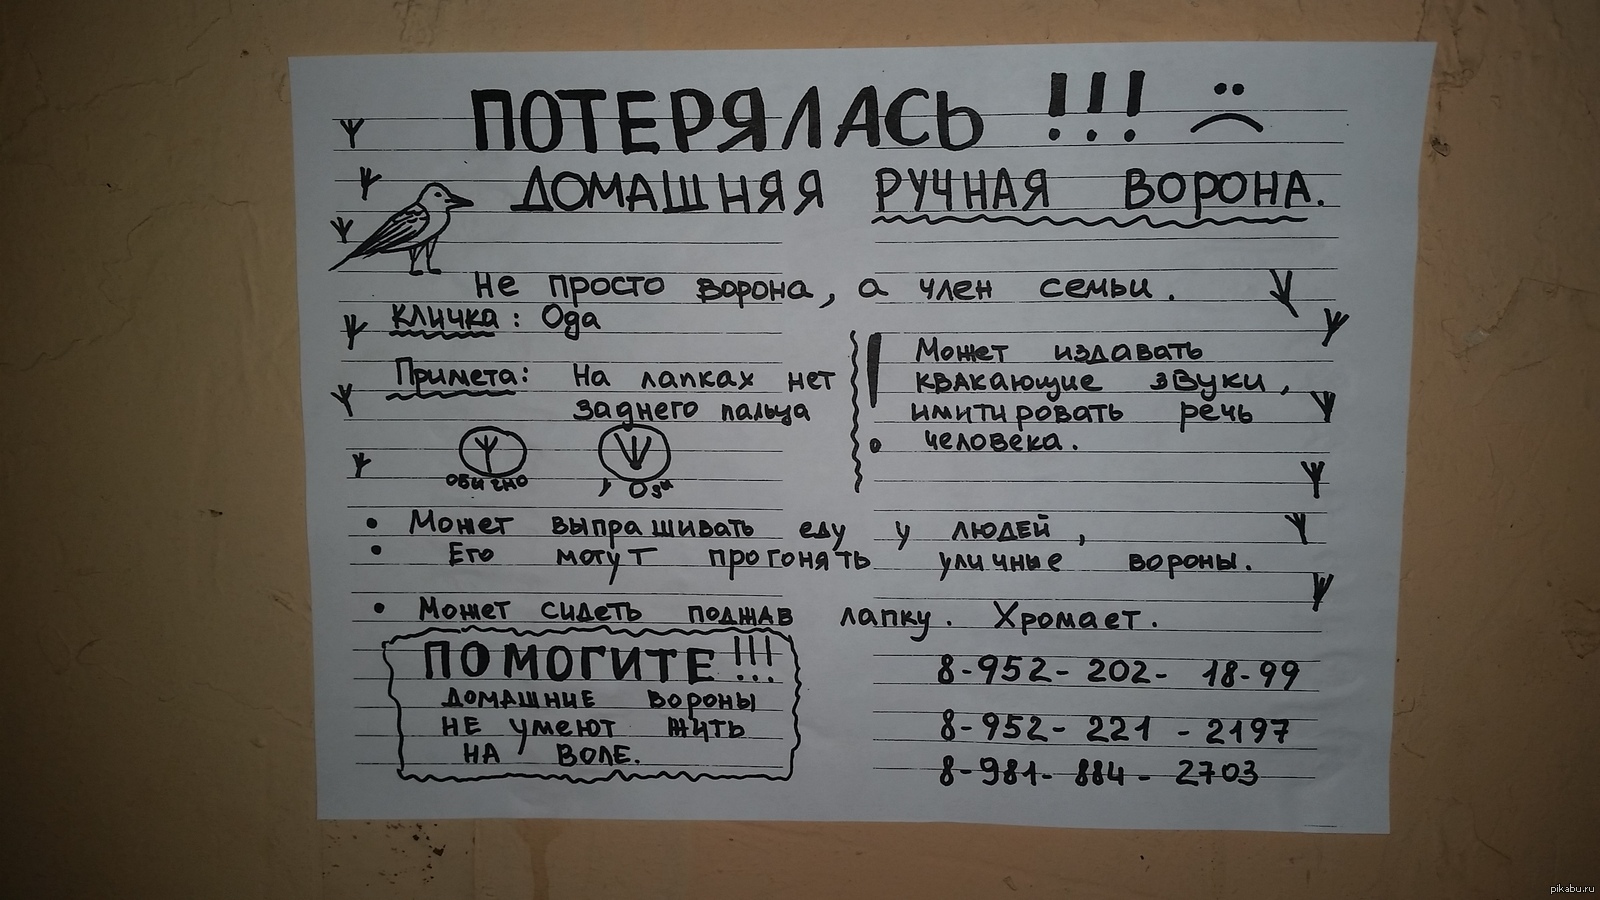 ПОТЕРЯЛАСЬ !!!
ДОМАШНЯЯ РУЧНАЯ ВОРОНА.
Не просто ворона, а член семьи.
Кличка: Ода
Примета: На лапках нет
заднего пальца
обычно
у Оды
Может издавать
квакающие звуки,
имитировать речь
человека.
• Может выпрашивать еду у людей,
• Его могут прогонять уличные вороны.
• Может сидеть поджав лапку. Хромает.
ПОМОГИТЕ!!!
ДОМАШНИЕ ВОРОНЫ
НЕ умеют жить
НА ВОЛЕ.
8-952-202-18-99
8-952-221-2197
8-981-884-2703
pikabu.ru